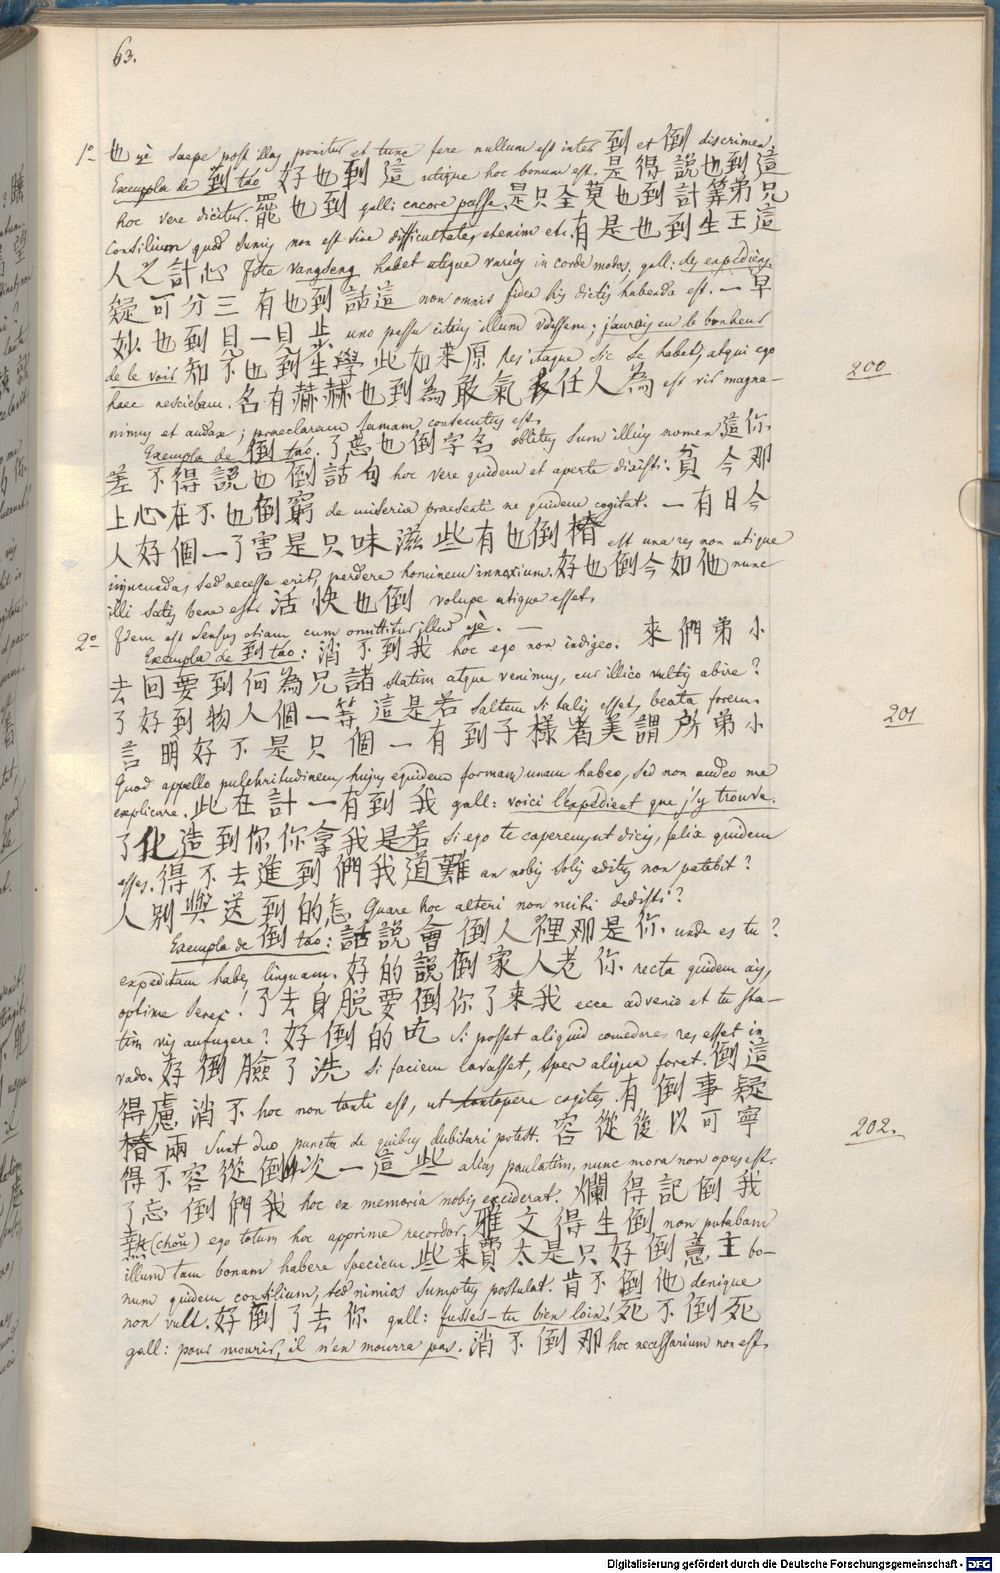 63.
1º 也 yè saepe post illas ponitur et tunc fere nullum est inter 到 et 倒 discrimen.
Exempla de 到 táo 好也到這 utique hoc bonum est. 是得說也到這
hoc vere dicitur. 罷也到 gall: encore passe. 是只全莫也到計算弟兄
Consilium quod sumis non est sine difficultate, etenim etc. 有是也到生王這
人之計心 Iste vangseng habet utique varios in corde modos, gall: des expediens
疑可分三有也到話這 non omnis fides his dictis habenda est. 一早
妙也到見一目步 uno passu citius illum vidissem; j'aurois eu le bonheur
de le voir 知不也到生學此如來原 res itaque sic se habet, atqui ego
haec nesciebam. 名有赫赫也到為敢氣任人為 est vir magna-
nimus et audax; praeclaram famam consecutus est.
Exempla de 倒 táo. 了忘也倒字名 oblitus sum illius nomen 這你
差不得說也倒話句 hoc vere quidem et aperte dixisti. 貧今那
上心在不也倒窮 de miseria praesenti ne quidem cogitat. 一有日今
人好個一了害是只味滋些有也倒樁 est una res non utique
injucunda, sed necesse erit, perdere hominem innoxium. 好也倒今如他 nunc
illi satis bene est. 活快也倒 volupe utique esset.
2º Idem est sensus etiam cum omittitur illud yè. —
Exempla de 到 táo: 消不到我 hoc ego non indigeo. 來們弟小
去回要到何為兄諸 statim atque venimus, cur illico vultis abire?
了好到物人個一等這是若 saltem si talis esset, beata forem.
言明好不是只個一有到子樣者美謂所弟小
Quod appello pulchritudinem, hujus equidem formam unam habeo, sed non audeo me
explicare. 此在計一有到我 gall: voici l'expédient que j'y trouve.
了化造到你你拿我是若 si ego te caperem, ut dicis, felix quidem
esses. 得不去進到們我道難 an nobis solis aditus non patebit?
人別與送到的怎 Quare hoc alteri non mihi dedisti?
Exempla de 倒 táo: 話說會倒人裡那是你 unde es tu?
expeditam habes linguam. 好的說倒家人老你 recta quidem ais,
optime senex! 了去身脫要倒你了來我 ecce advenio et tu sta-
tim vis aufugere? 好倒的吃 si posset aliquid comedere, res esset in
vado. 好倒臉了洗 si faciem lavasset, spes aliqua foret. 倒這
得慮消不 hoc non tanti est, ut tantopere cogites. 有倒事疑
樁兩 sunt duo puncta de quibus dubitari potest. 容從後以可寧
得不容從倒次一這些 alias paulatim, nunc mora non opus est.
了忘倒們我 hoc ex memoria nobis exciderat. 爛得記倒我
熟 (choŭ) ego totum hoc apprime recordor. 雅文得生倒 non putabam
illum tam bonam habere speciem. 些來費太是只好倒意主 bo-
num quidem consilium, sed nimios sumptus postulat. 肯不倒他 denique
non vult. 好倒了去你 gall: fusses-tu bien loin! 死不倒死
gall: pour mourir, il n'en mourra pas. 消不倒那 hoc necessarium non est.
200
201
202.
Digitalisierung gefördert durch die Deutsche Forschungsgemeinschaft - DFG